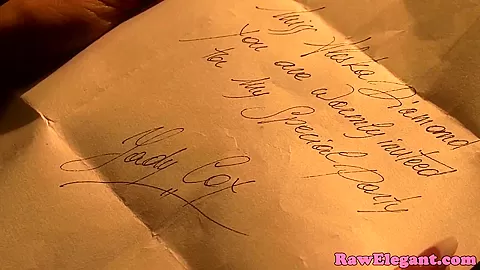 Miss Alaska Diamond
You are warmly invited
to My
Special Party
Lady Cox
RawElegant.com